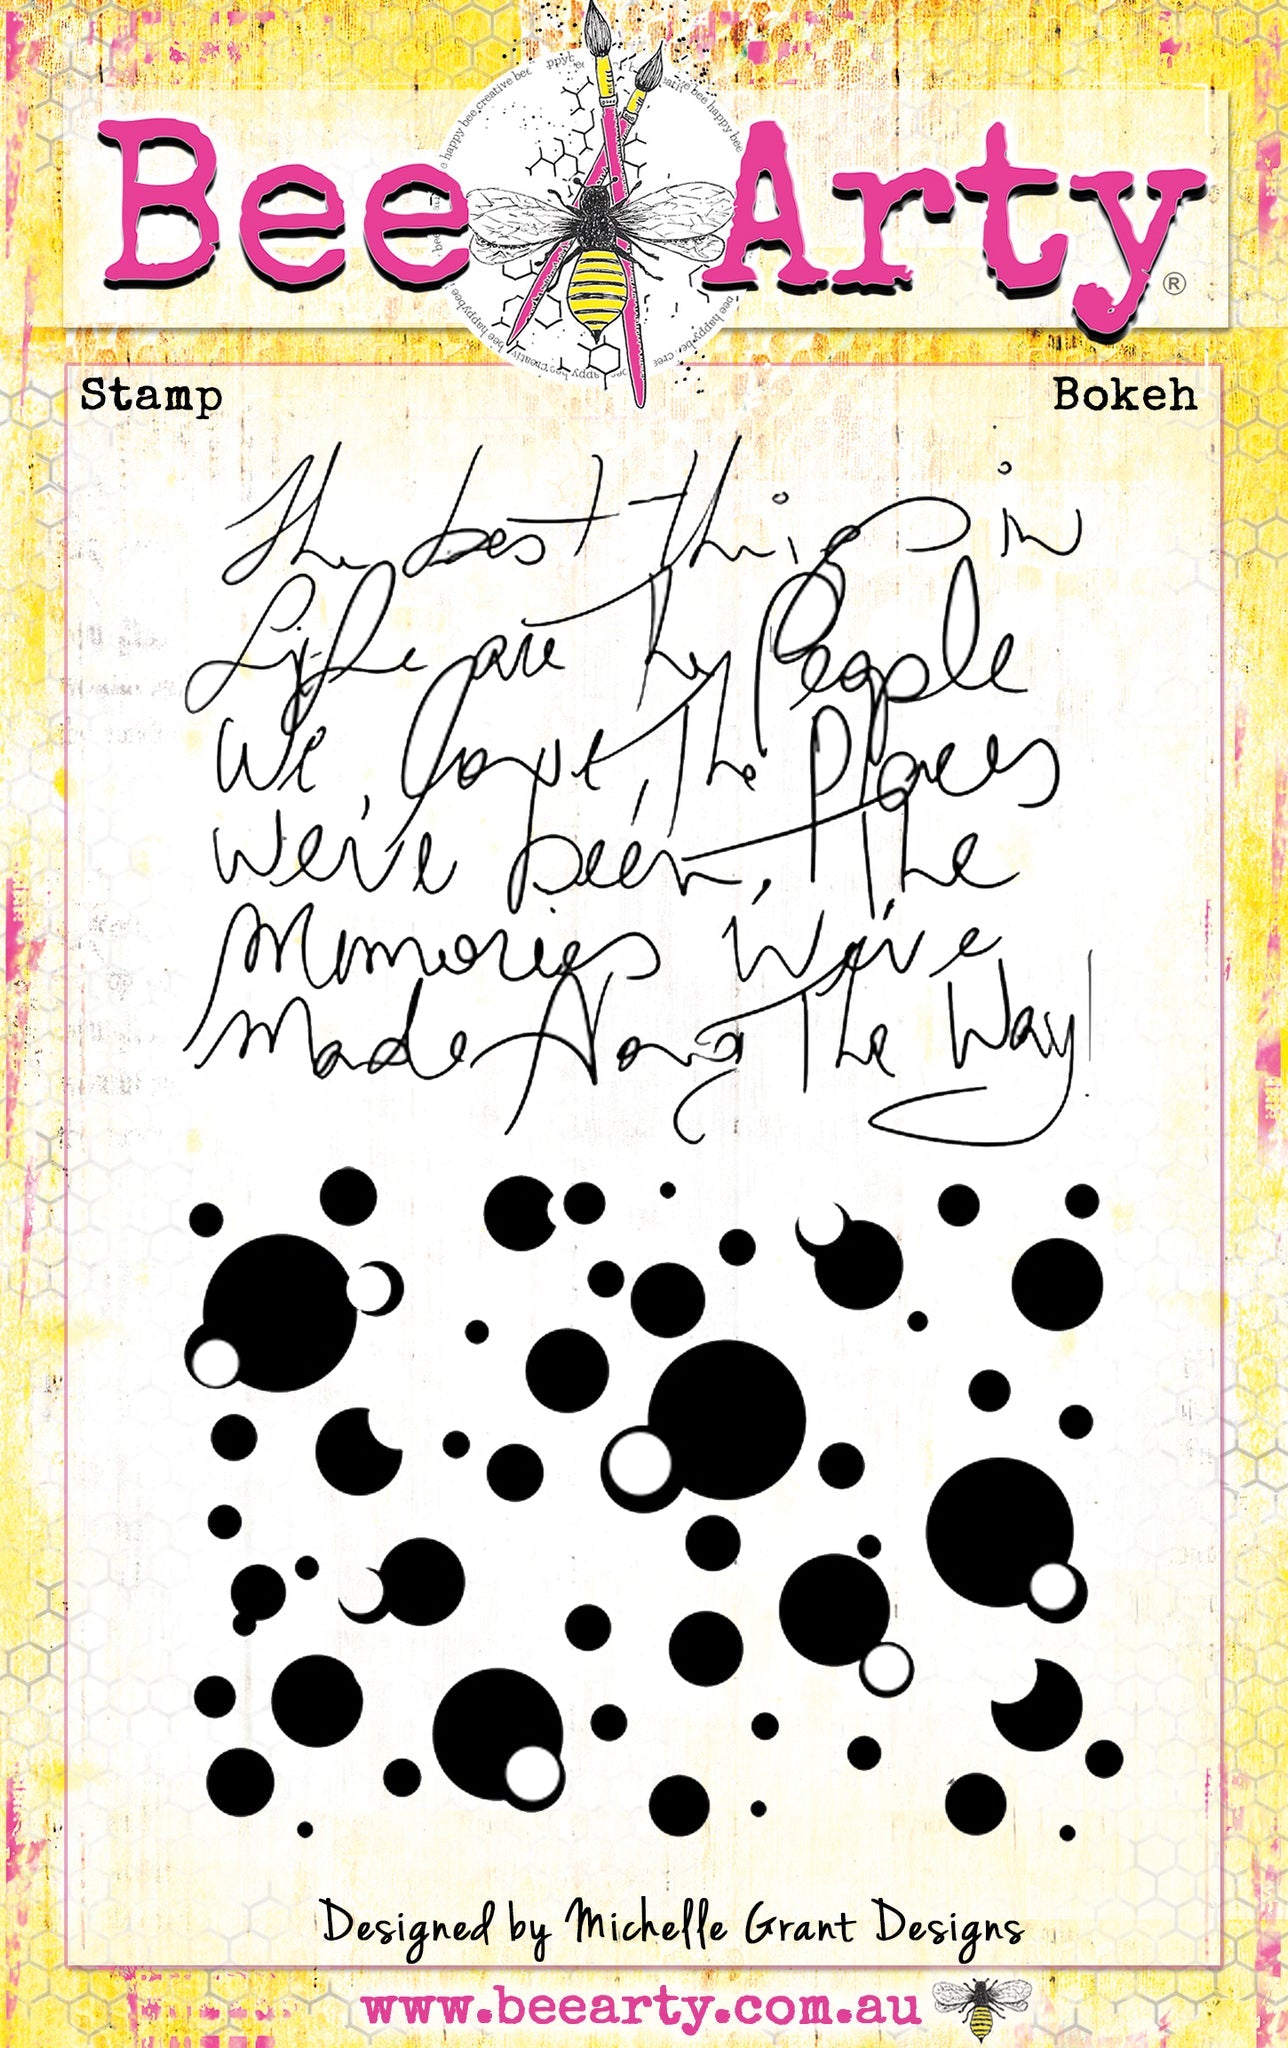 Bee Arty®
bee happy bee creative bee
Stamp
Bokeh
The best things in
Life are the People
We Love, The Places
We've been, The
Memories We've
Made Along The Way!
Designed by Michelle Grant Designs
www.beearty.com.au